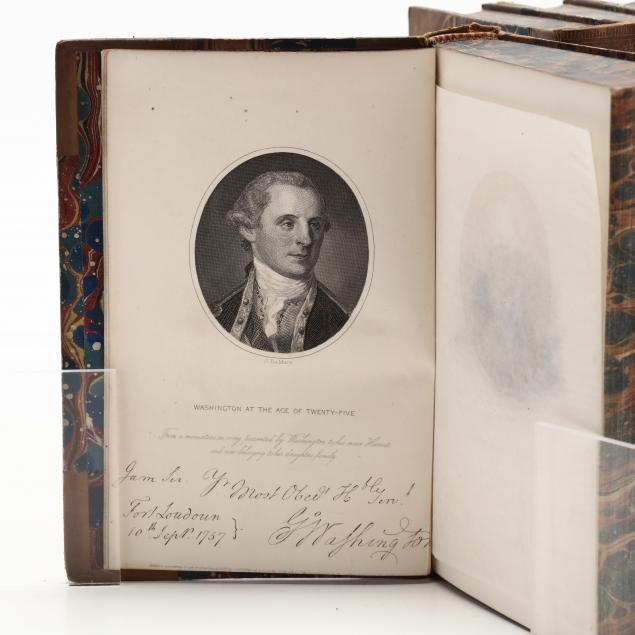 J. De Mare
WASHINGTON AT THE AGE OF TWENTY-FIVE
From a miniature on ivory, presented by Washington to his niece Harriet
and now belonging to her daughter's family
I am Sir. Yr Most Obedt. Hble Servt
Fort Loudoun
10th Septr. 1757 } Go Washington